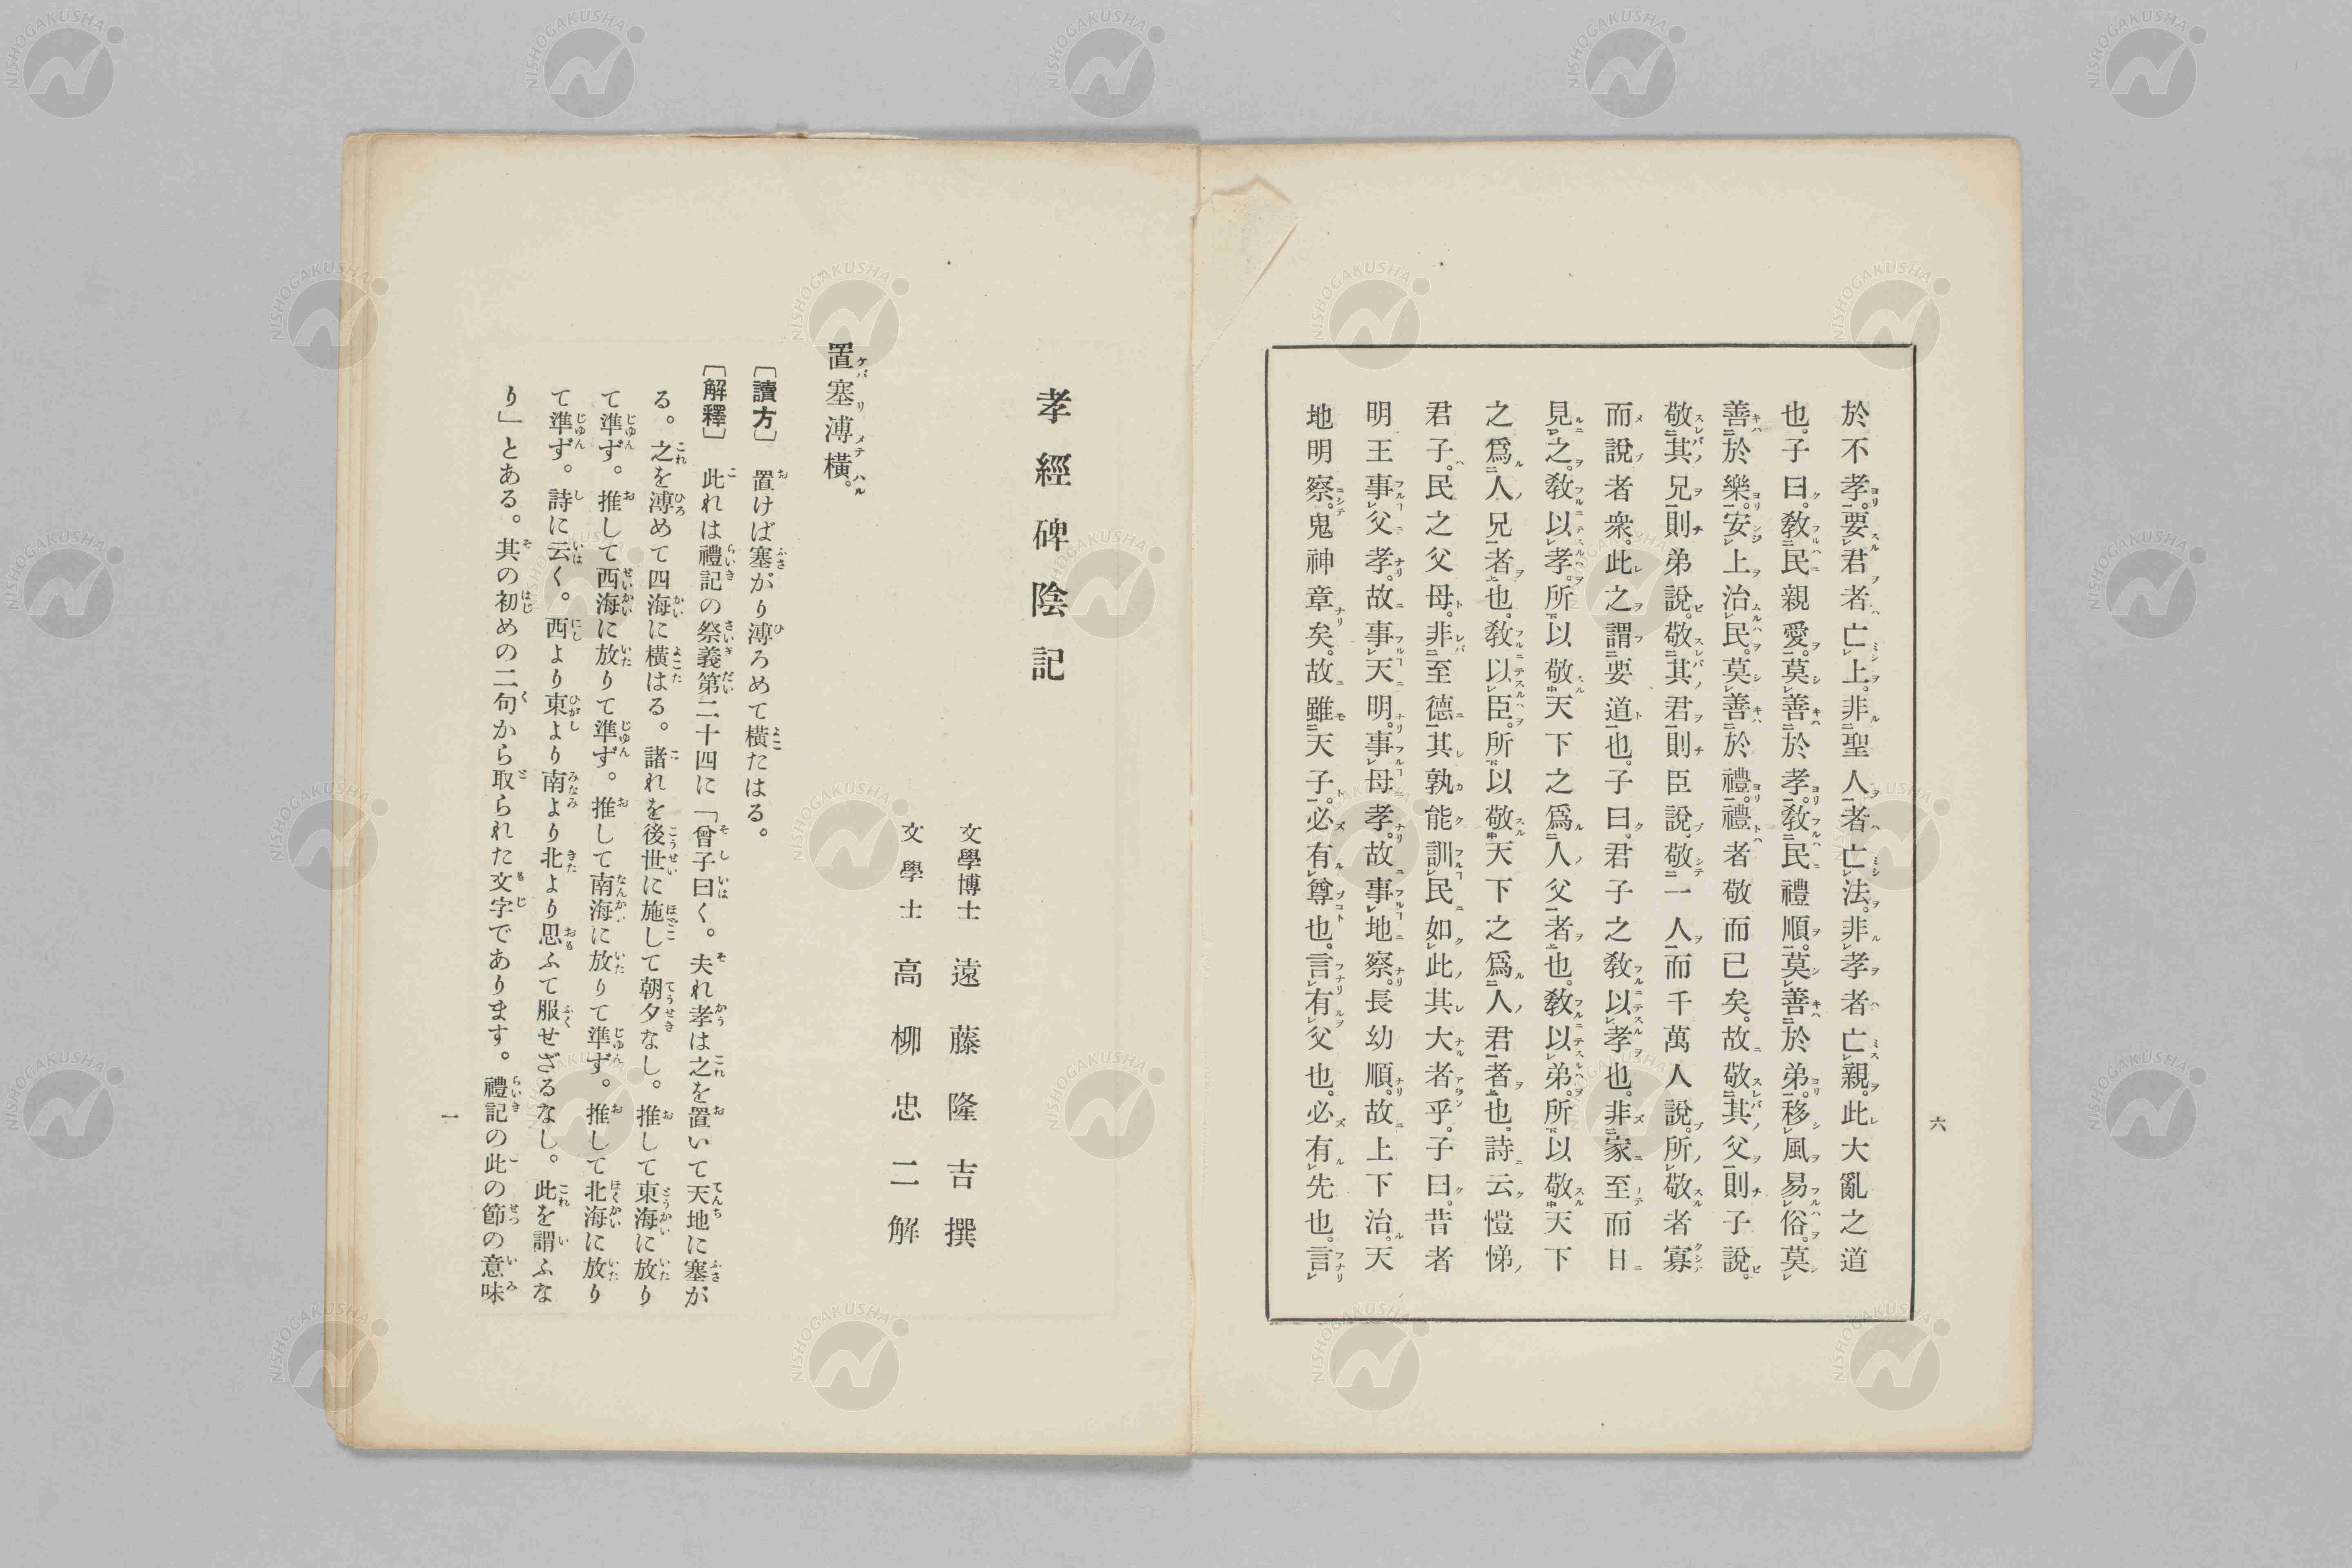 六
於不孝。要君者亡上。非聖人者亡法。非孝者亡親。此大亂之道
也。子曰。敎民親愛。莫善於孝。敎民禮順。莫善於弟。移風易俗。莫
善於樂。安上治民。莫善於禮。禮者敬而已矣。故敬其父則子說。
敬其兄則弟說。敬其君則臣說。敬一人而千萬人說。所敬者寡
而說者衆。此之謂要道也。子曰。君子之敎以孝也。非家至而日
見之。敎以孝。所以敬天下之爲人父者也。敎以弟。所以敬天下
之爲人兄者也。敎以臣。所以敬天下之爲人君者也。詩云愷悌
君子。民之父母。非至德其孰能訓民如此其大者乎。子曰。昔者
明王事父孝。故事天明。事母孝。故事地察。長幼順。故上下治。天
地明察。鬼神章矣。故雖天子。必有尊也。言有父也。必有先也。言
孝經碑陰記
文學博士 遠藤隆吉撰
文學士 高柳忠二解
置塞溥橫。
〔讀方〕 置けば塞がり溥ろめて橫たはる。
〔解釋〕 此れは禮記の祭義第二十四に「曾子曰く。夫れ孝は之を置いて天地に塞が
る。之を溥めて四海に橫はる。諸れを後世に施して朝夕なし。推して東海に放り
て準ず。推して西海に放りて準ず。推して南海に放りて準ず。推して北海に放り
て準ず。詩に云く。西より東より南より北より思ふて服せざるなし。此を謂ふな
り」とある。其の初めの二句から取られた文字であります。禮記の此の節の意味
一
NISHOGAKUSHA